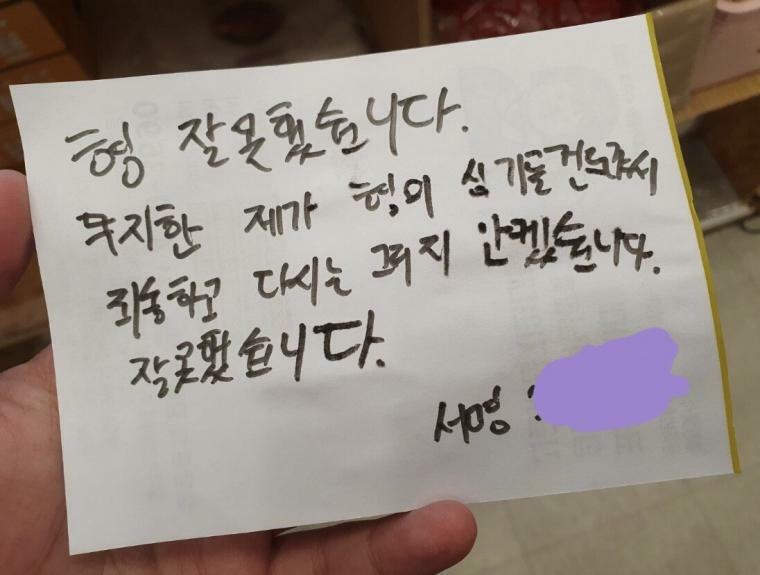 형 잘못했습니다.
무지한 제가 형의 심기를 건드려서
죄송하고 다시는 그러지 않겠습니다.
잘못했습니다.
서명 :